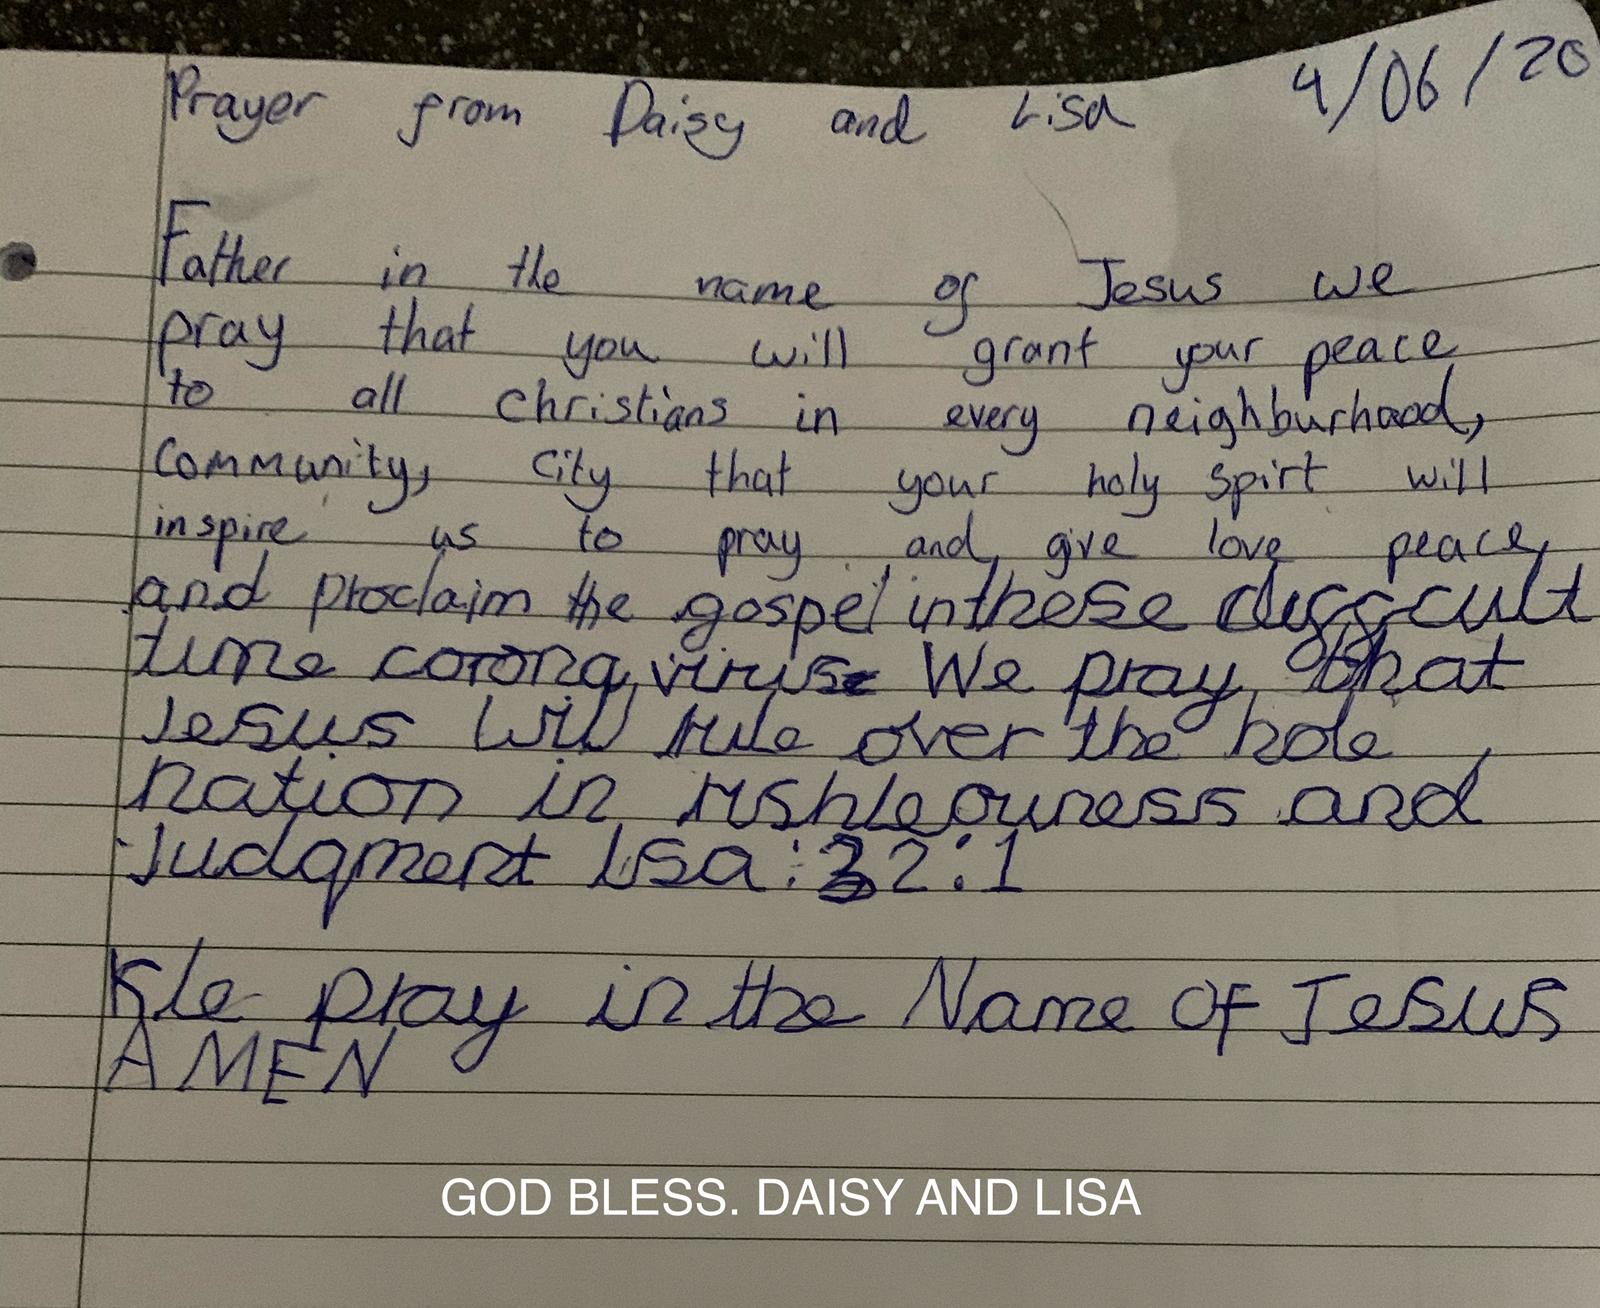 Prayer from Daisy and Lisa 4/06/20
Father in the name of Jesus we
pray that you will grant your peace
to all christians in every neighburhood,
Community, city that your holy spirt will
inspire us to pray and give love peace,
and proclaim the gospel in these difficult
time corona, viris We pray that
Jesus will rule over the hole
nation in rishleouness and
Judgment Isa: 32:1
We pray in the Name OF Jesus
AMEN
GOD BLESS. DAISY AND LISA